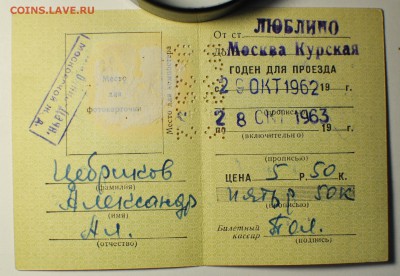 COINS.LAVE.RU
Место
для
фотокарточки
Место для компостера
Московской ж. д.
Цебриков
(фамилия)
Александр
(имя)
Ал.
(отчество)
От ст. ЛЮБЛИНО
До Москва Курская
ГОДЕН ДЛЯ ПРОЕЗДА
с 28 ОКТ 1962 19 г.
(прописью)
по 28 ОКТ 1963 19 г.
(включительно)
(прописью)
ЦЕНА 5 Р. 50 К.
пять р 50к
(прописью)
Билетный
кассир
(подпись)